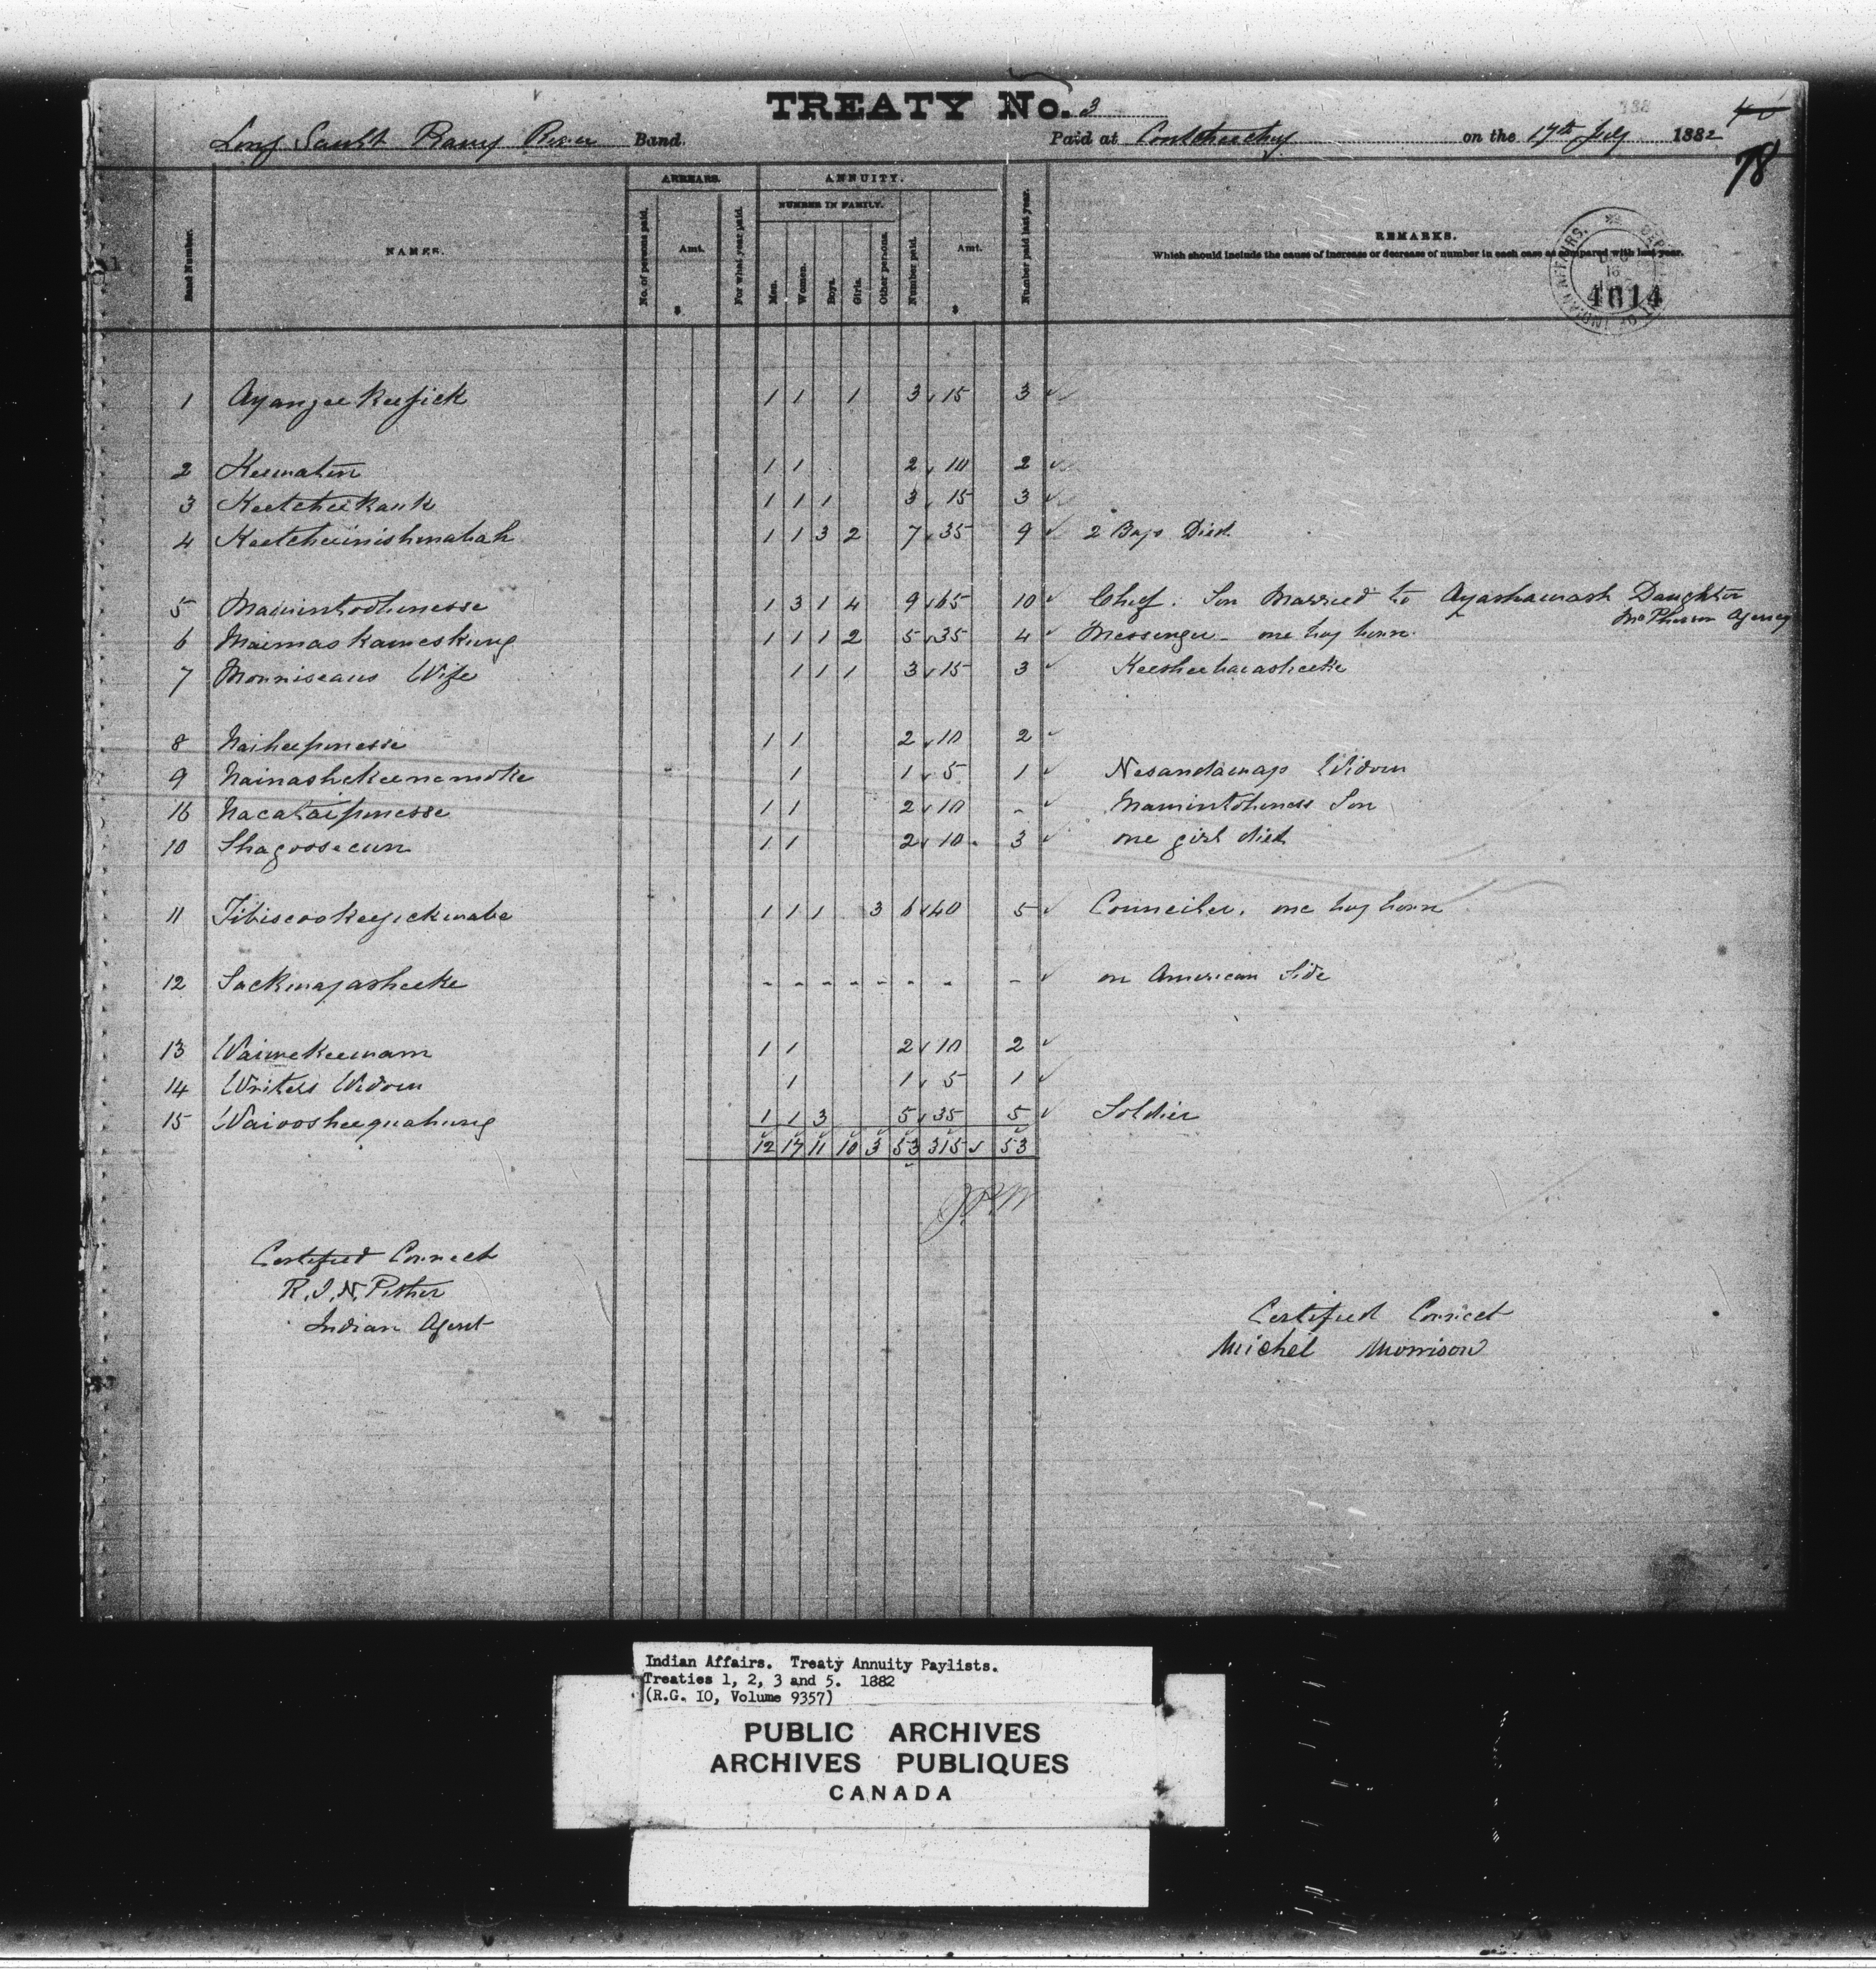 TREATY No. 3
138
78
Long Sault Rainy River Band. Paid at Coutcheeching on the 17th July 1882
ARREARS. ANNUITY.
NUMBER IN FAMILY.
Band Number. NAMES. No. of persons paid. Amt. $ For what year paid. Men. Women. Boys. Girls. Other persons. Number paid. Amt. $ Number paid last year. REMARKS.
Which should include the cause of increase or decrease of number in each case as compared with last year.
INDIAN AFFAIRS. DEPT OF
4614
1 Ayangeekeesick 1 1 1 3 15 3
2 Keewatin 1 1 2 10 2
3 Keetcheekauk 1 1 1 3 15 3
4 Keetcheeinishinabah 1 1 3 2 7 35 9 2 Boys Died
5 Mawintodinesse 1 3 1 4 9 65 10 Chief. Son Married to Ayashawash Daughter
McPherson Agency
6 Maimaskaweskung 1 1 1 2 5 35 4 Messenger - one boy born
7 Monniseaus Wife 1 1 1 3 15 3 Keesheebawasheeke
8 Naiheepinesse 1 1 2 10 2
9 Nainashekeenemoke 1 1 5 1 Nesandawap Widow
16 Nacataipinesse 1 1 2 10 - Mawintohiness Son
10 Shagoosecun 1 1 2 10 3 one girl died
11 Tibiscookeejickwabe 1 1 1 3 6 40 5 Councilor. one boy born
12 Sackwayasheeke - - - - - - - - on American Side
13 Waiwekeewam 1 1 2 10 2
14 Writers Widow 1 1 5 1
15 Waioosheequahung 1 1 3 5 35 5 Soldier
12 17 11 10 3 53 315 53
Certified Correct
R.J.N. Pither
Indian Agent
Certified Correct
Michel Morrison
Indian Affairs. Treaty Annuity Paylists.
Treaties 1, 2, 3 and 5. 1882
(R.G. 10, Volume 9357)
PUBLIC ARCHIVES
ARCHIVES PUBLIQUES
CANADA